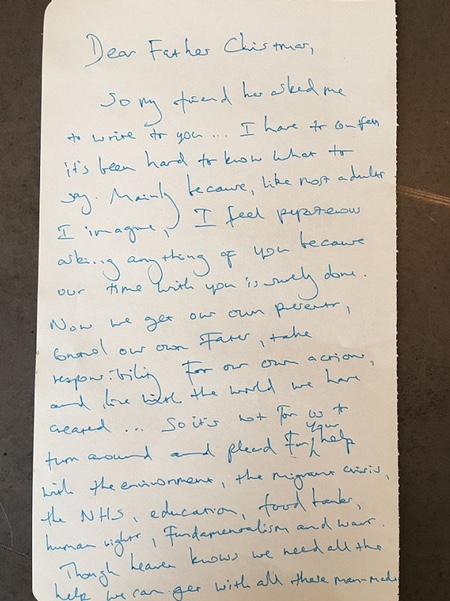 Dear Father Christmas,
So my friend has asked me
to write to you... I have to confess
it's been hard to know what to
say. Mainly because, like most adults
I imagine, I feel
asking anything of you because
our time with you is surely done.
Now we get our own presents,
control our own fates, take
responsibility for our own actions,
and live with the world we have
created... So it's not for us to
turn around and plead for your help
with the environment, the migrant crisis,
the NHS, education, food banks,
human rights, fundamentalism and war.
Though heaven knows we need all the
help we can get with all these man-made